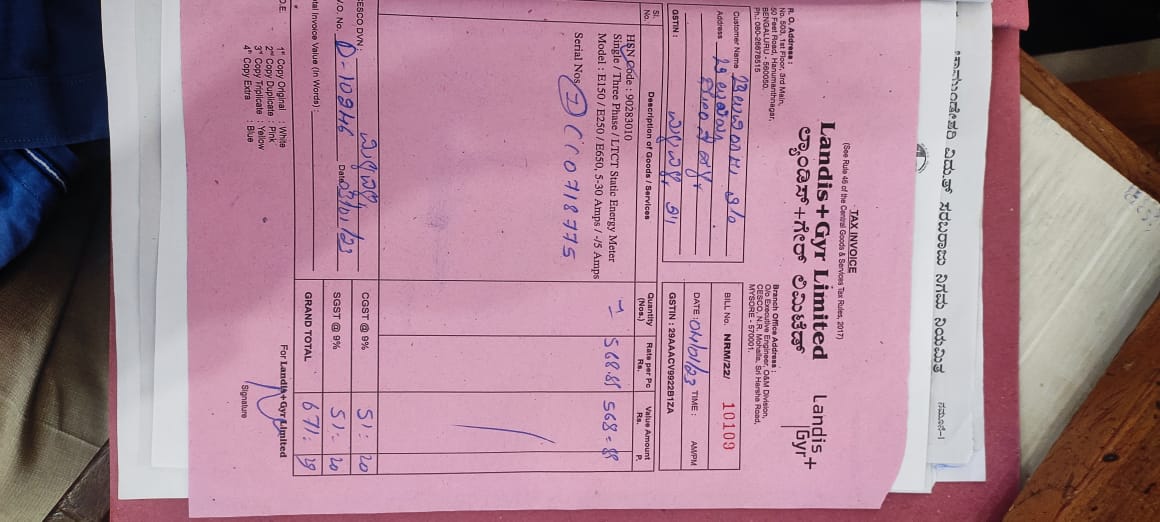 ಚಾಮುಂಡೇಶ್ವರಿ ವಿದ್ಯುತ್ ಸರಬರಾಜು ನಿಗಮ ನಿಯಮಿತ
ನಮೂನೆ-1
TAX INVOICE
(See Rule 46 of the Central Goods & Services Tax Rules, 2017)
Landis+Gyr Limited
ಲ್ಯಾಂಡಿಸ್+ಗೇರ್ ಲಿಮಿಟೆಡ್
Landis+
Gyr+
R. O. Address :
No. 503, 1st Floor, 3rd Main,
50 Feet Road, Hanumanthnagar,
BENGALURU - 560050.
Ph.: 080-26678515
Branch Office Address :
O/o Executive Engineer, O&M Division,
CESCO, N.R. Mohalla, Sri Harsha Road,
MYSORE - 570001.
Customer Name
Address
GSTIN :
BILL No. NRM/22/ 10109
DATE : 04/01/23 TIME : AM/PM
GSTIN : 29AAACV9922B1ZA
Sl. No. Description of Goods / Services Quantity (Nos.) Rate per Pc Rs. Value Amount Rs. P.
HSN Code : 90283010
Single / Three Phase / LTCT Static Energy Meter
Model : E150 / E250 / E650, 5-30 Amps / -/5 Amps
1 568.89 568=89
Serial Nos. 0718775
CESCO DVN :
CGST @ 9% 51=20
D-10246 Date
SGST @ 9% 51=20
Total Invoice Value (In Words) :
GRAND TOTAL 671=29
1st Copy Original : White
2nd Copy Duplicate : Pink
3rd Copy Triplicate : Yellow
4th Copy Extra : Blue
For Landis+Gyr Limited
Signature